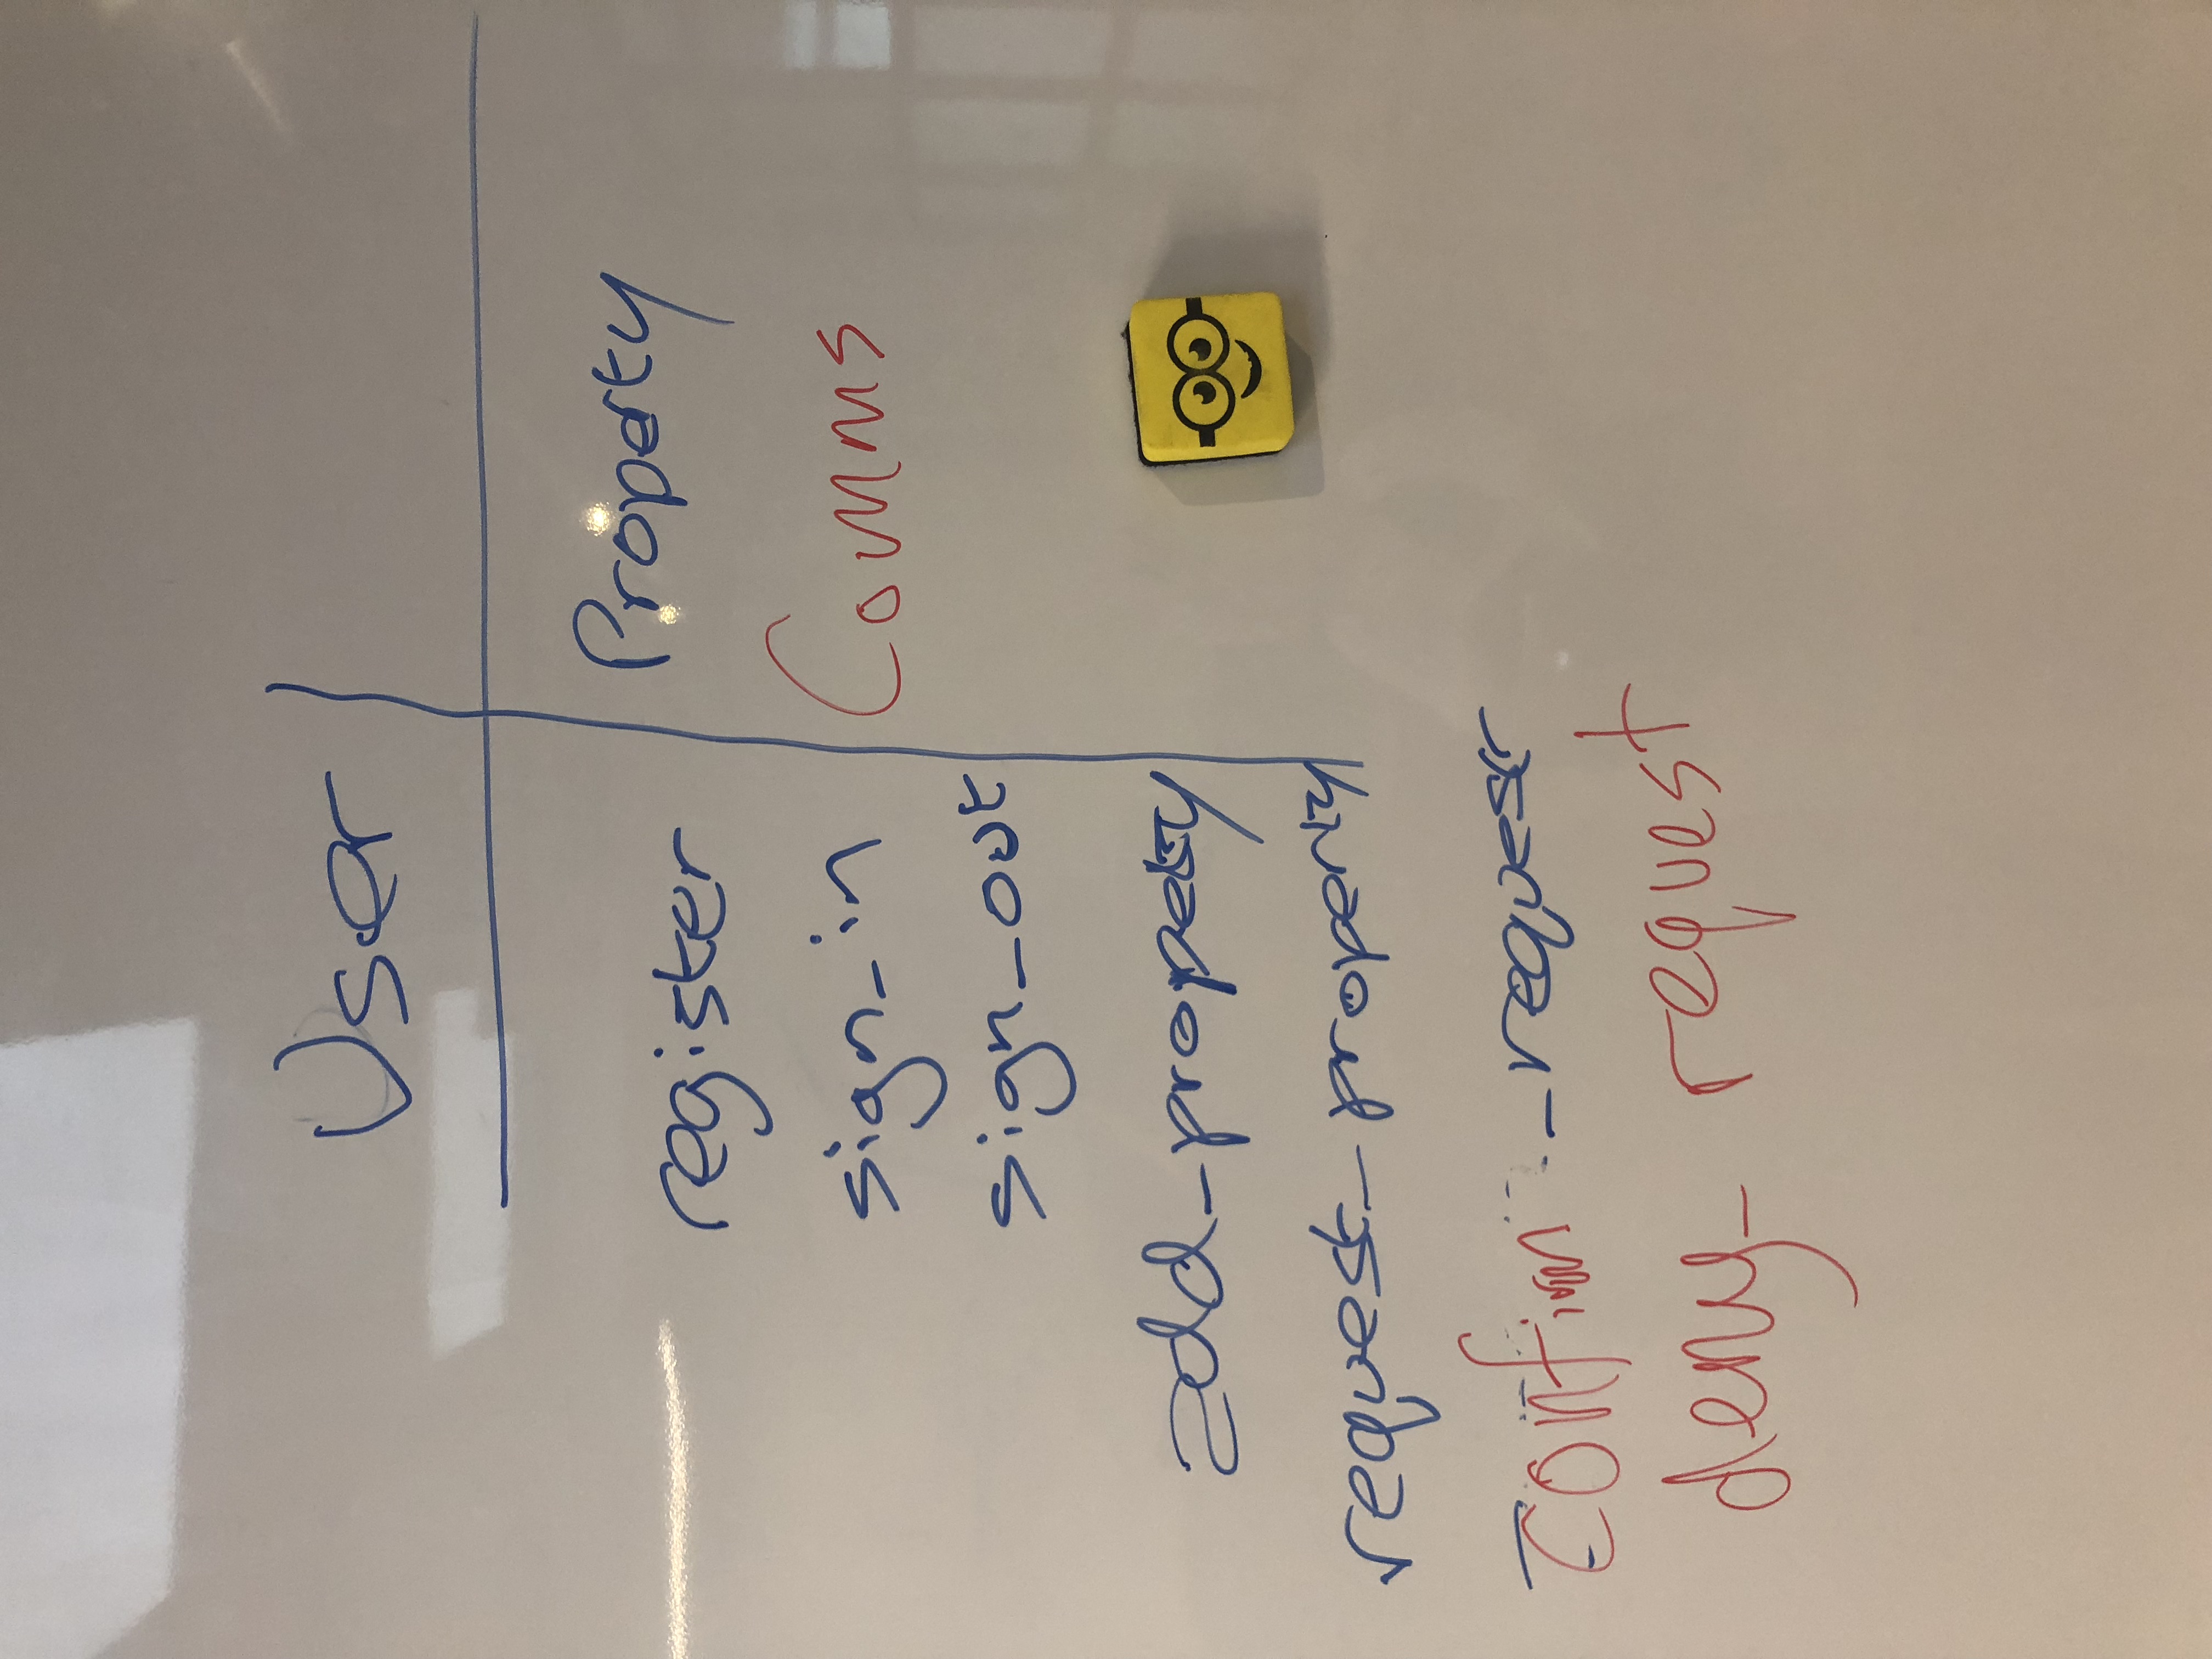 User
register
sign_in
sign_out
add_property
request_property
confirm_request
deny_request
Property
Comms